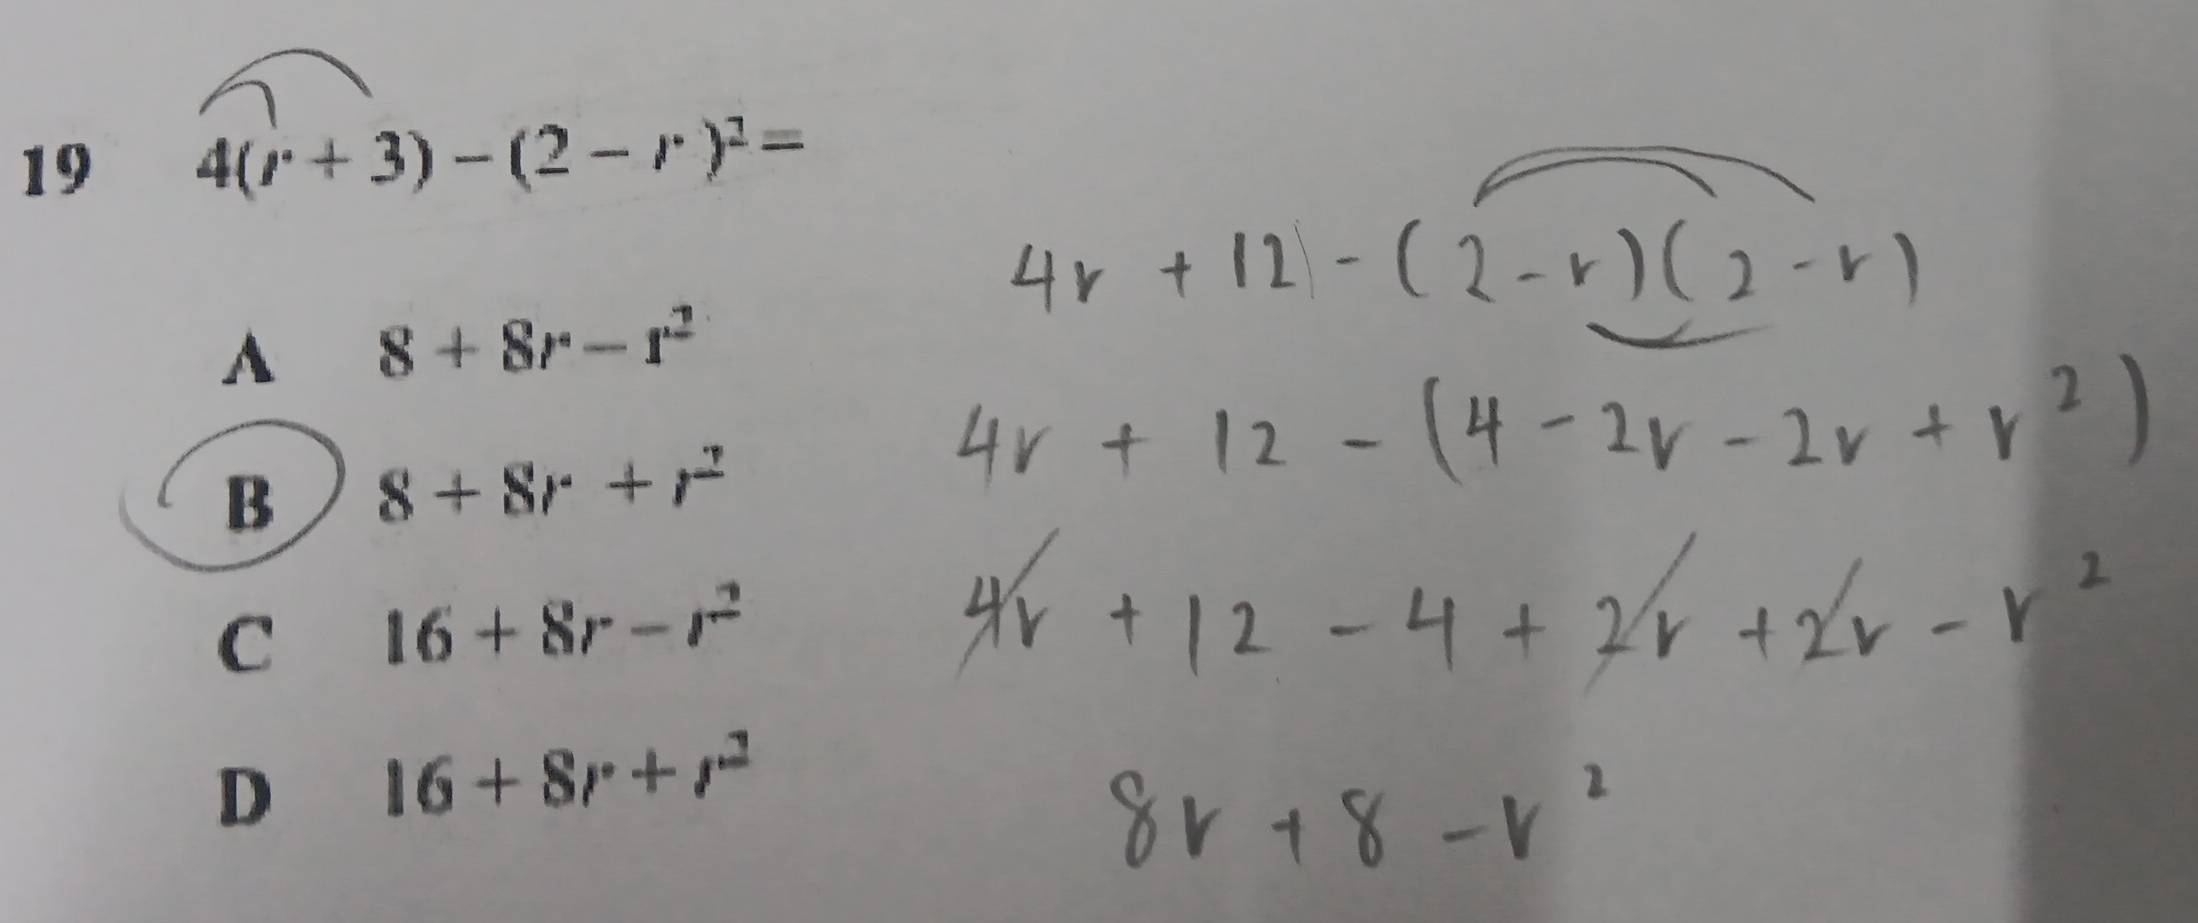 19 4(r + 3) – (2 – r)² =
A 8 + 8r – r²
B 8 + 8r + r²
C 16 + 8r – r²
D 16 + 8r + r²
4r + 12 - (2 - r)(2 - r)
4r + 12 - (4 - 2r - 2r + r²)
4r + 12 - 4 + 2r + 2r - r²
8r + 8 - r²